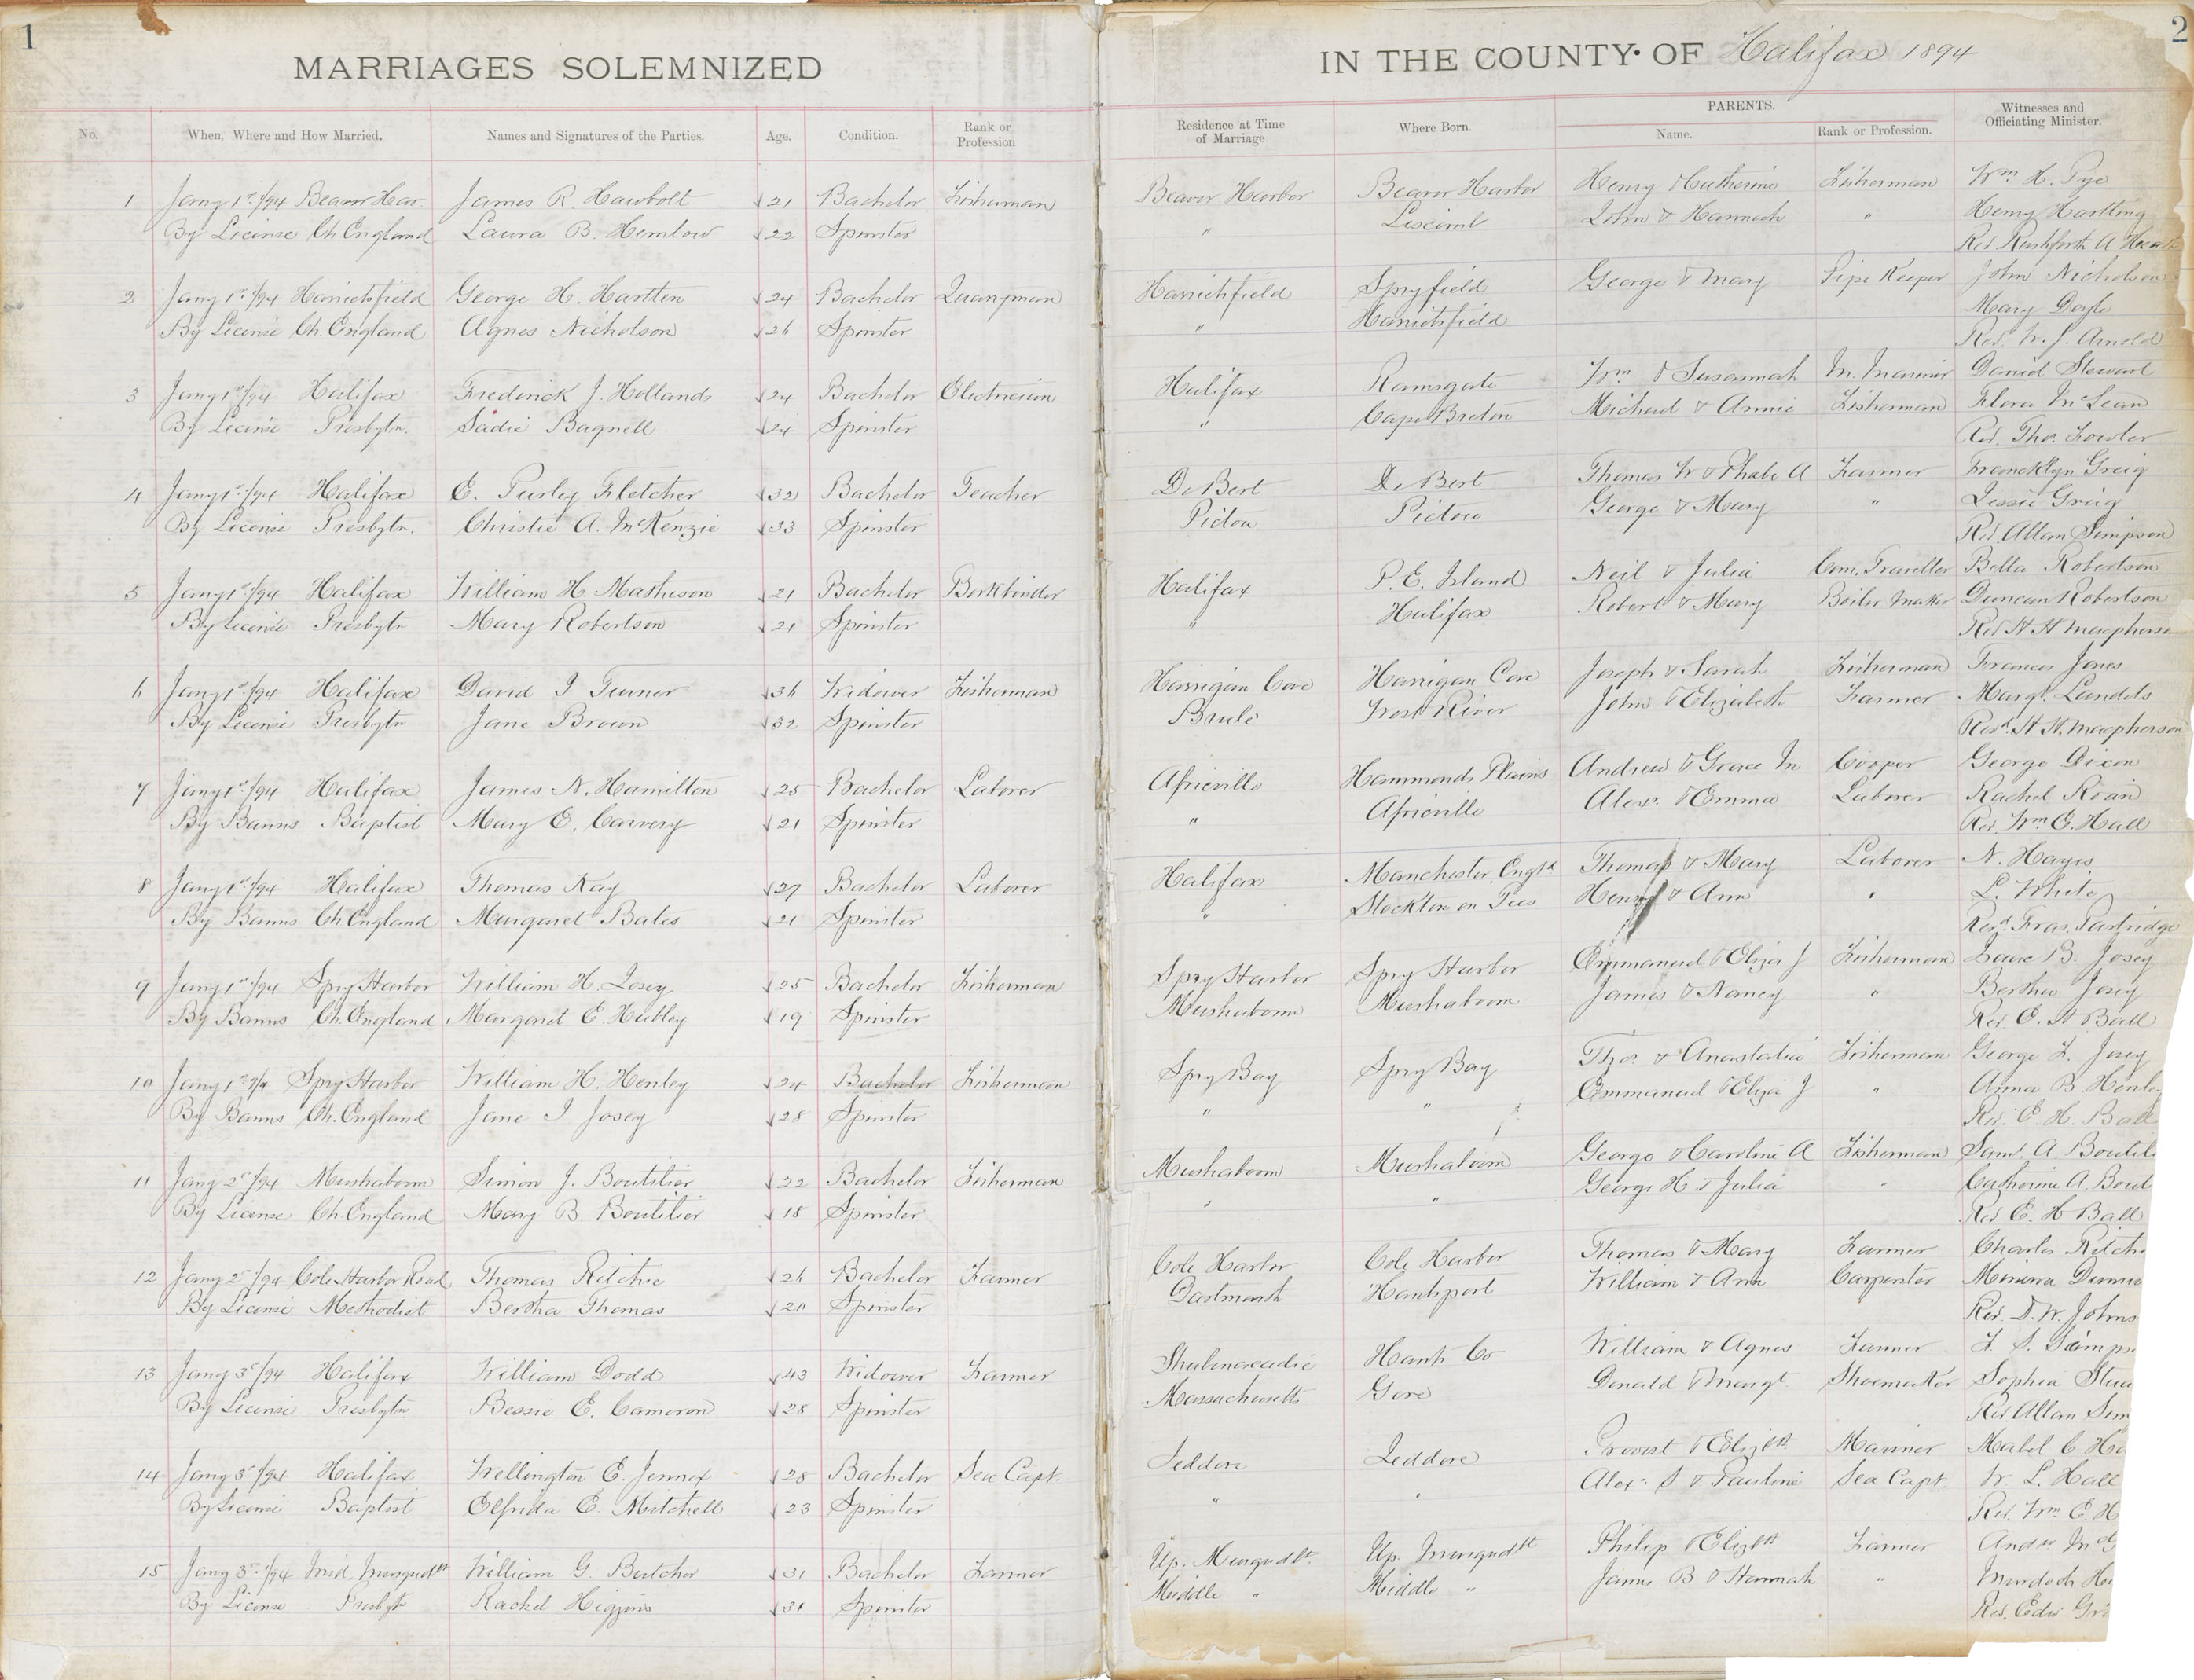 1
MARRIAGES SOLEMNIZED
No. When, Where and How Married. Names and Signatures of the Parties. Age. Condition. Rank or Profession
1 Jany 1st/94 Beaver Har. James R. Hawbolt 21 Bachelor Fisherman
By License Ch England Laura B. Hemlow 22 Spinster
2 Jany 1st/94 Harrietsfield George H. Hartlen 24 Bachelor Quarryman
By License Ch. England Agnes Nicholson 26 Spinster
3 Jany 1st/94 Halifax Frederick J. Hollands 24 Bachelor Electrician
By License Presbytn. Sadie Bagnell 24 Spinster
4 Jany 1st/94 Halifax E. Purley Fletcher 32 Bachelor Teacher
By License Presbytn. Christie A. McKenzie 33 Spinster
5 Jany 1st/94 Halifax William H. Matheson 21 Bachelor Bookbinder
By License Presbytn Mary Robertson 21 Spinster
6 Jany 1st/94 Halifax David I Turner 36 Widower Fisherman
By License Presbytn Jane Brown 32 Spinster
7 Jany 1st/94 Halifax James N. Hamilton 25 Bachelor Laborer
By Banns Baptist Mary E. Carvery 21 Spinster
8 Jany 1st/94 Halifax Thomas Kay 27 Bachelor Laborer
By Banns Ch. England Margaret Bates 21 Spinster
9 Jany 1st/94 Spry Harbor William H. Josey 25 Bachelor Fisherman
By Banns Ch. England Margaret E. Hubley 19 Spinster
10 Jany 1st Spry Harbor William H. Henley 24 Bachelor Fisherman
By Banns Ch. England Jane I Josey 28 Spinster
11 Jany 2d/94 Mushaboom Simon J. Boutilier 22 Bachelor Fisherman
By License Ch England Mary B Boutilier 18 Spinster
12 Jany 2d/94 Cole Harbor Road Thomas Ritchie 26 Bachelor Farmer
By License Methodist Bertha Thomas Spinster
13 Jany 3d/94 Halifax William Dodd 43 Widower Farmer
By License Presbytn Bessie E. Cameron 28 Spinster
14 Jany 3d/94 Halifax Wellington E. Jennex 28 Bachelor Sea Capt.
By License Baptist Elfrida E. Mitchell 23 Spinster
15 Jany 3d/94 Mid. Musqudbt William G. Butcher 31 Bachelor Farmer
By License Presbytn Rachel Higgins Spinster
2
IN THE COUNTY OF Halifax 1894
Residence at Time of Marriage Where Born. PARENTS. Name. Rank or Profession. Witnesses and Officiating Minister.
Beaver Harbor Beaver Harbor Henry & Catherine Fisherman Wm H. Pye
" Liscomb John & Hannah " Henry Hartling
Rev Rushforth A
Harrietsfield Spryfield George & Mary Pipe Keeper John Nicholson
" Harrietsfield Mary Doyle
Rev. W. J. Arnold
Halifax Ramsgate Wm & Susannah M. Mariner Daniel Stewart
" Cape Breton Michael & Annie Fisherman Flora McLean
Rev. Thos. Fowler
De Bert De Bert Thomas W & Phebe A Farmer Francklyn Greig
Pictou Pictou George & Mary " Jessie Greig
Rev. Allan Simpson
Halifax P. E. Island Neil & Julia Com. Traveller Bella Robertson
" Halifax Robert & Mary Boiler Maker Duncan Robertson
Rev H H Macpherson
Harrigan Cove Harrigan Cove Joseph & Sarah Fisherman Frances Jones
Brule West River John & Elizabeth Farmer Margt. Landels
Revd. H. H. Macpherson
Africville Hammonds Plains Andrew & Grace M Cooper George Dixon
" Africville Alexr. & Emma Laborer Rachel Roan
Rev. Wm. E. Hall
Halifax Manchester Engld Thomas & Mary Laborer N. Hayes
" Stockton on Tees Henry & Ann " L. White
Revd. Fras. Partridge
Spry Harbor Spry Harbor Emmanuel & Eliza J Fisherman Isaac B. Josey
Mushaboom Mushaboom James & Nancy " Bertha Josey
Rev. E. H Ball
Spry Bay Spry Bay Thos. & Anastatia Fisherman George F. Josey
" " Emmanuel & Eliza J " Anna B. Henley
Rev. E. H. Ball
Mushaboom Mushaboom George & Caroline A Fisherman Saml. A Boutili
" " George H & Julia " Catherine A. Bout
Rev E. H Ball
Cole Harbor Cole Harbor Thomas & Mary Farmer Charles Ritchi
Dartmouth Hantsport William & Ann Carpenter Minerva
Rev. D. W. Johns
Shubenacadie Hants Co William & Agnes Farmer F. S. Simps
Massachusetts Gore Donald & Margt. Shoemaker Sophia Stua
Rev. Allan Sim
Jeddore Jeddore Provost & Elizbth Mariner Mabel C
" " Alexr. S & Pauline Sea Capt. W. L. Hall
Rev. Wm. E. H
Up. Musqudbt. Up. Musqudbt Philip & Elizbth Farmer Andw. McG
Middle " Middle " James B & Hannah " Murdoch
Rev. Edw Gr